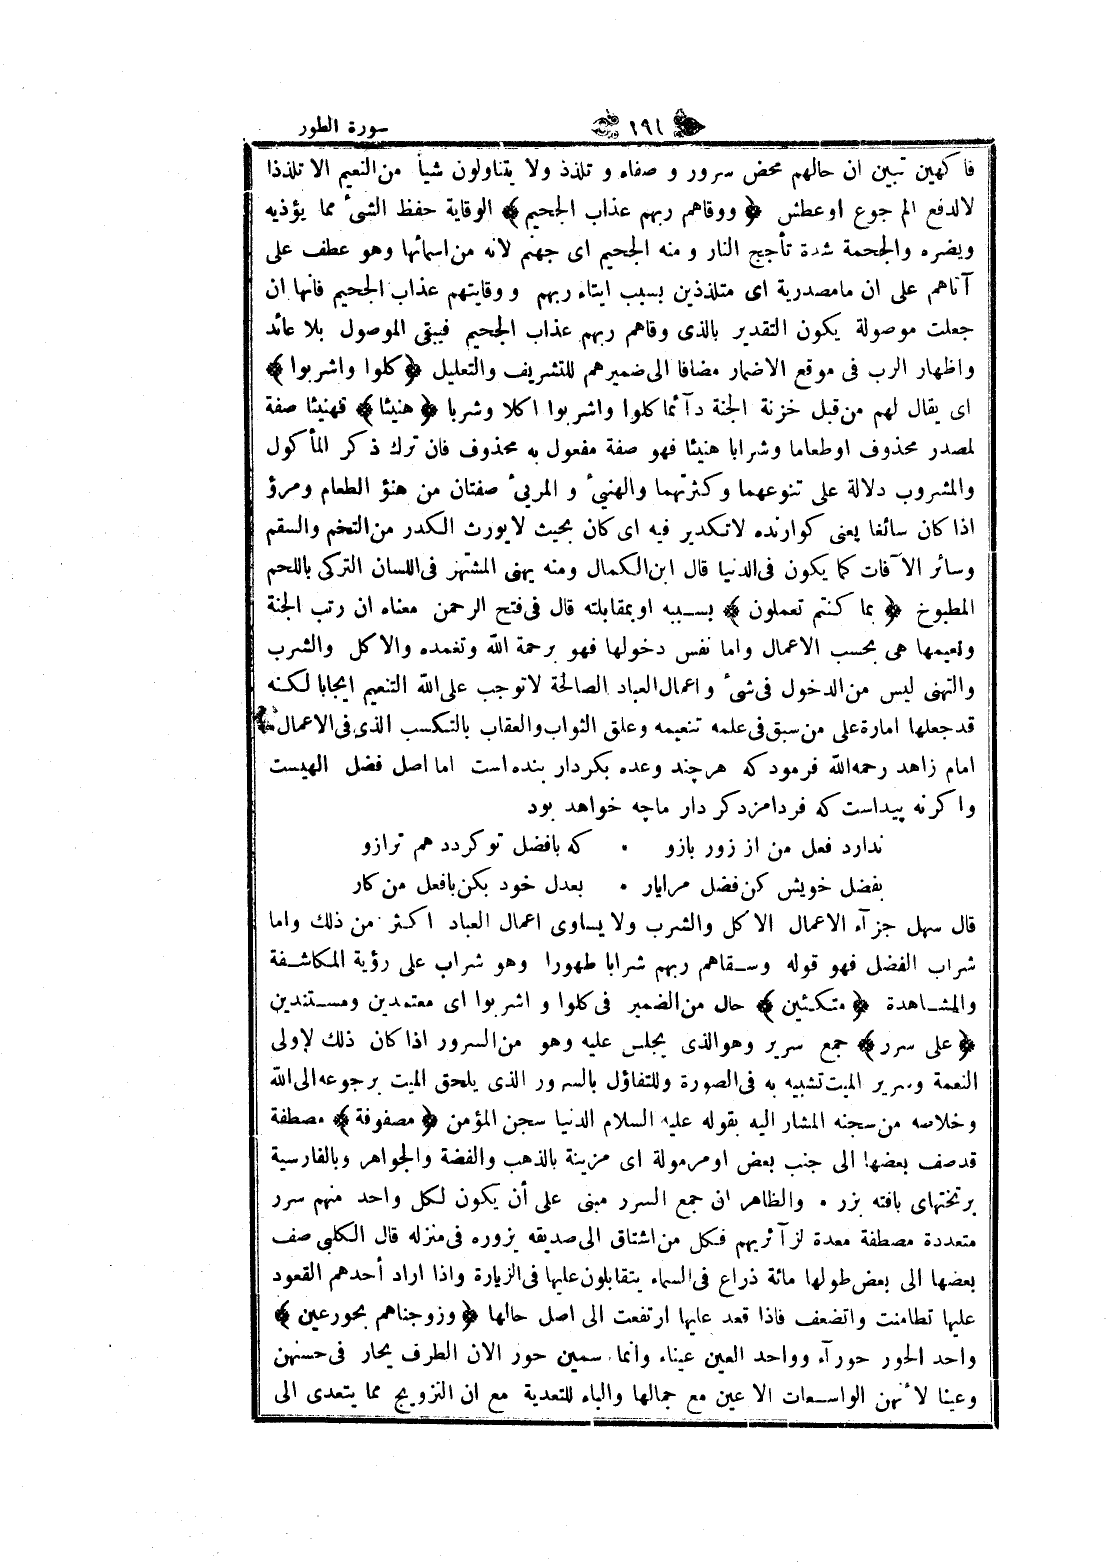 سورة الطور
١٩١
فاكهين تبين ان حالهم محض سرور و صفاء و تلذذ ولا يتناولون شيأ من النعيم الا تلذذا
لا لدفع الم جوع او عطش ﴿ ووقاهم ربهم عذاب الجحيم ﴾ الوقاية حفظ الشىء مما يؤذيه
ويضره والجحمة شدة تأجيج النار و منه الجحيم اى جهنم لانه من اسمائها وهو عطف على
آتاهم على ان مامصدرية اى متلذذين بسبب ايتاء ربهم ووقايتهم عذاب الجحيم فانها ان
جعلت موصولة يكون التقدير بالذى وقاهم ربهم عذاب الجحيم فيبقى الموصول بلا عائد
واظهار الرب فى موقع الاضمار مضافا الى ضميرهم للتشريف والتعليل ﴿ كلوا واشربوا ﴾
اى يقال لهم من قبل خزنة الجنة دآئما كلوا واشربوا اكلا وشربا ﴿ هنيئا ﴾ فهنيئا صفة
لمصدر محذوف او طعاما وشرابا هنيئا فهو صفة مفعول به محذوف فان ترك ذكر المأكول
والمشروب دلالة على تنوعهما وكثرتهما والهنيىء و المريىء صفتان من هنؤ الطعام ومرؤ
اذا كان سائغا يعنى كوارنده لاتكدير فيه اى كان بحيث لا يورث الكدر من التخم والسقم
وسائر الآفات كما يكون فى الدنيا قال ابن الكمال ومنه يهنى المشتهر فى اللسان التركى باللحم
المطبوخ ﴿ بما كنتم تعملون ﴾ بسببه او بمقابلته قال فى فتح الرحمن معناه ان رتب الجنة
ونعيمها هى بحسب الاعمال واما نفس دخولها فهو برحمة الله وتغمده والاكل والشرب
والتهنى ليس من الدخول فى شىء واعمال العباد الصالحة لا توجب على الله التنعيم ايجابا لكنه
قد جعلها امارة على من سبق فى علمه تنعيمه وعلق الثواب والعقاب بالتكسب الذى فى الاعمال
امام زاهد رحمه الله فرمود كه هرچند وعده بكردار بنده است اما اصل فضل الهيست
واكرنه پيداست كه فردا مزد كردار ماچه خواهد بود
ندارد فعل من از زور بازو • كه بافضل تو كردد هم ترازو
بفضل خويش كن فضل مرا يار • بعدل خود بكن بافعل من كار
قال سهل جزآء الاعمال الاكل والشرب ولا يساوى اعمال العباد اكثر من ذلك واما
شراب الفضل فهو قوله وسقاهم ربهم شرابا طهورا وهو شراب على رؤية المكاشفة
والمشاهدة ﴿ متكئين ﴾ حال من الضمير فى كلوا و اشربوا اى معتمدين ومستندين
﴿ على سرر ﴾ جمع سرير وهو الذى يجلس عليه وهو من السرور اذا كان ذلك لاولى
النعمة وسرير الميت تشبيه به فى الصورة وللتفاؤل بالسرور الذى يلحق الميت برجوعه الى الله
وخلاصه من سجنه المشار اليه بقوله عليه السلام الدنيا سجن المؤمن ﴿ مصفوفة ﴾ مصطفة
قدصف بعضها الى جنب بعض او مرمولة اى مزينة بالذهب والفضة والجواهر وبالفارسية
بر تختهاى بافته بزر • والظاهر ان جمع السرر مبنى على أن يكون لكل واحد منهم سرر
متعددة مصطفة معدة لزآئريهم فكل من اشتاق الى صديقه يزوره فى منزله قال الكلبى صف
بعضها الى بعض طولها مائة ذراع فى السماء يتقابلون عليها فى الزيارة واذا اراد أحدهم القعود
عليها تطامنت واتضعف فاذا قعد عليها ارتفعت الى اصل حالها ﴿ وزوجناهم بحور عين ﴾
واحد الحور حورآء وواحد العين عيناء وانما سمين حور الان الطرف يحار فى حسنهن
وعينا لأنهن الواسعات الاعين مع جمالها والباء للتعدية مع ان التزويج مما يتعدى الى